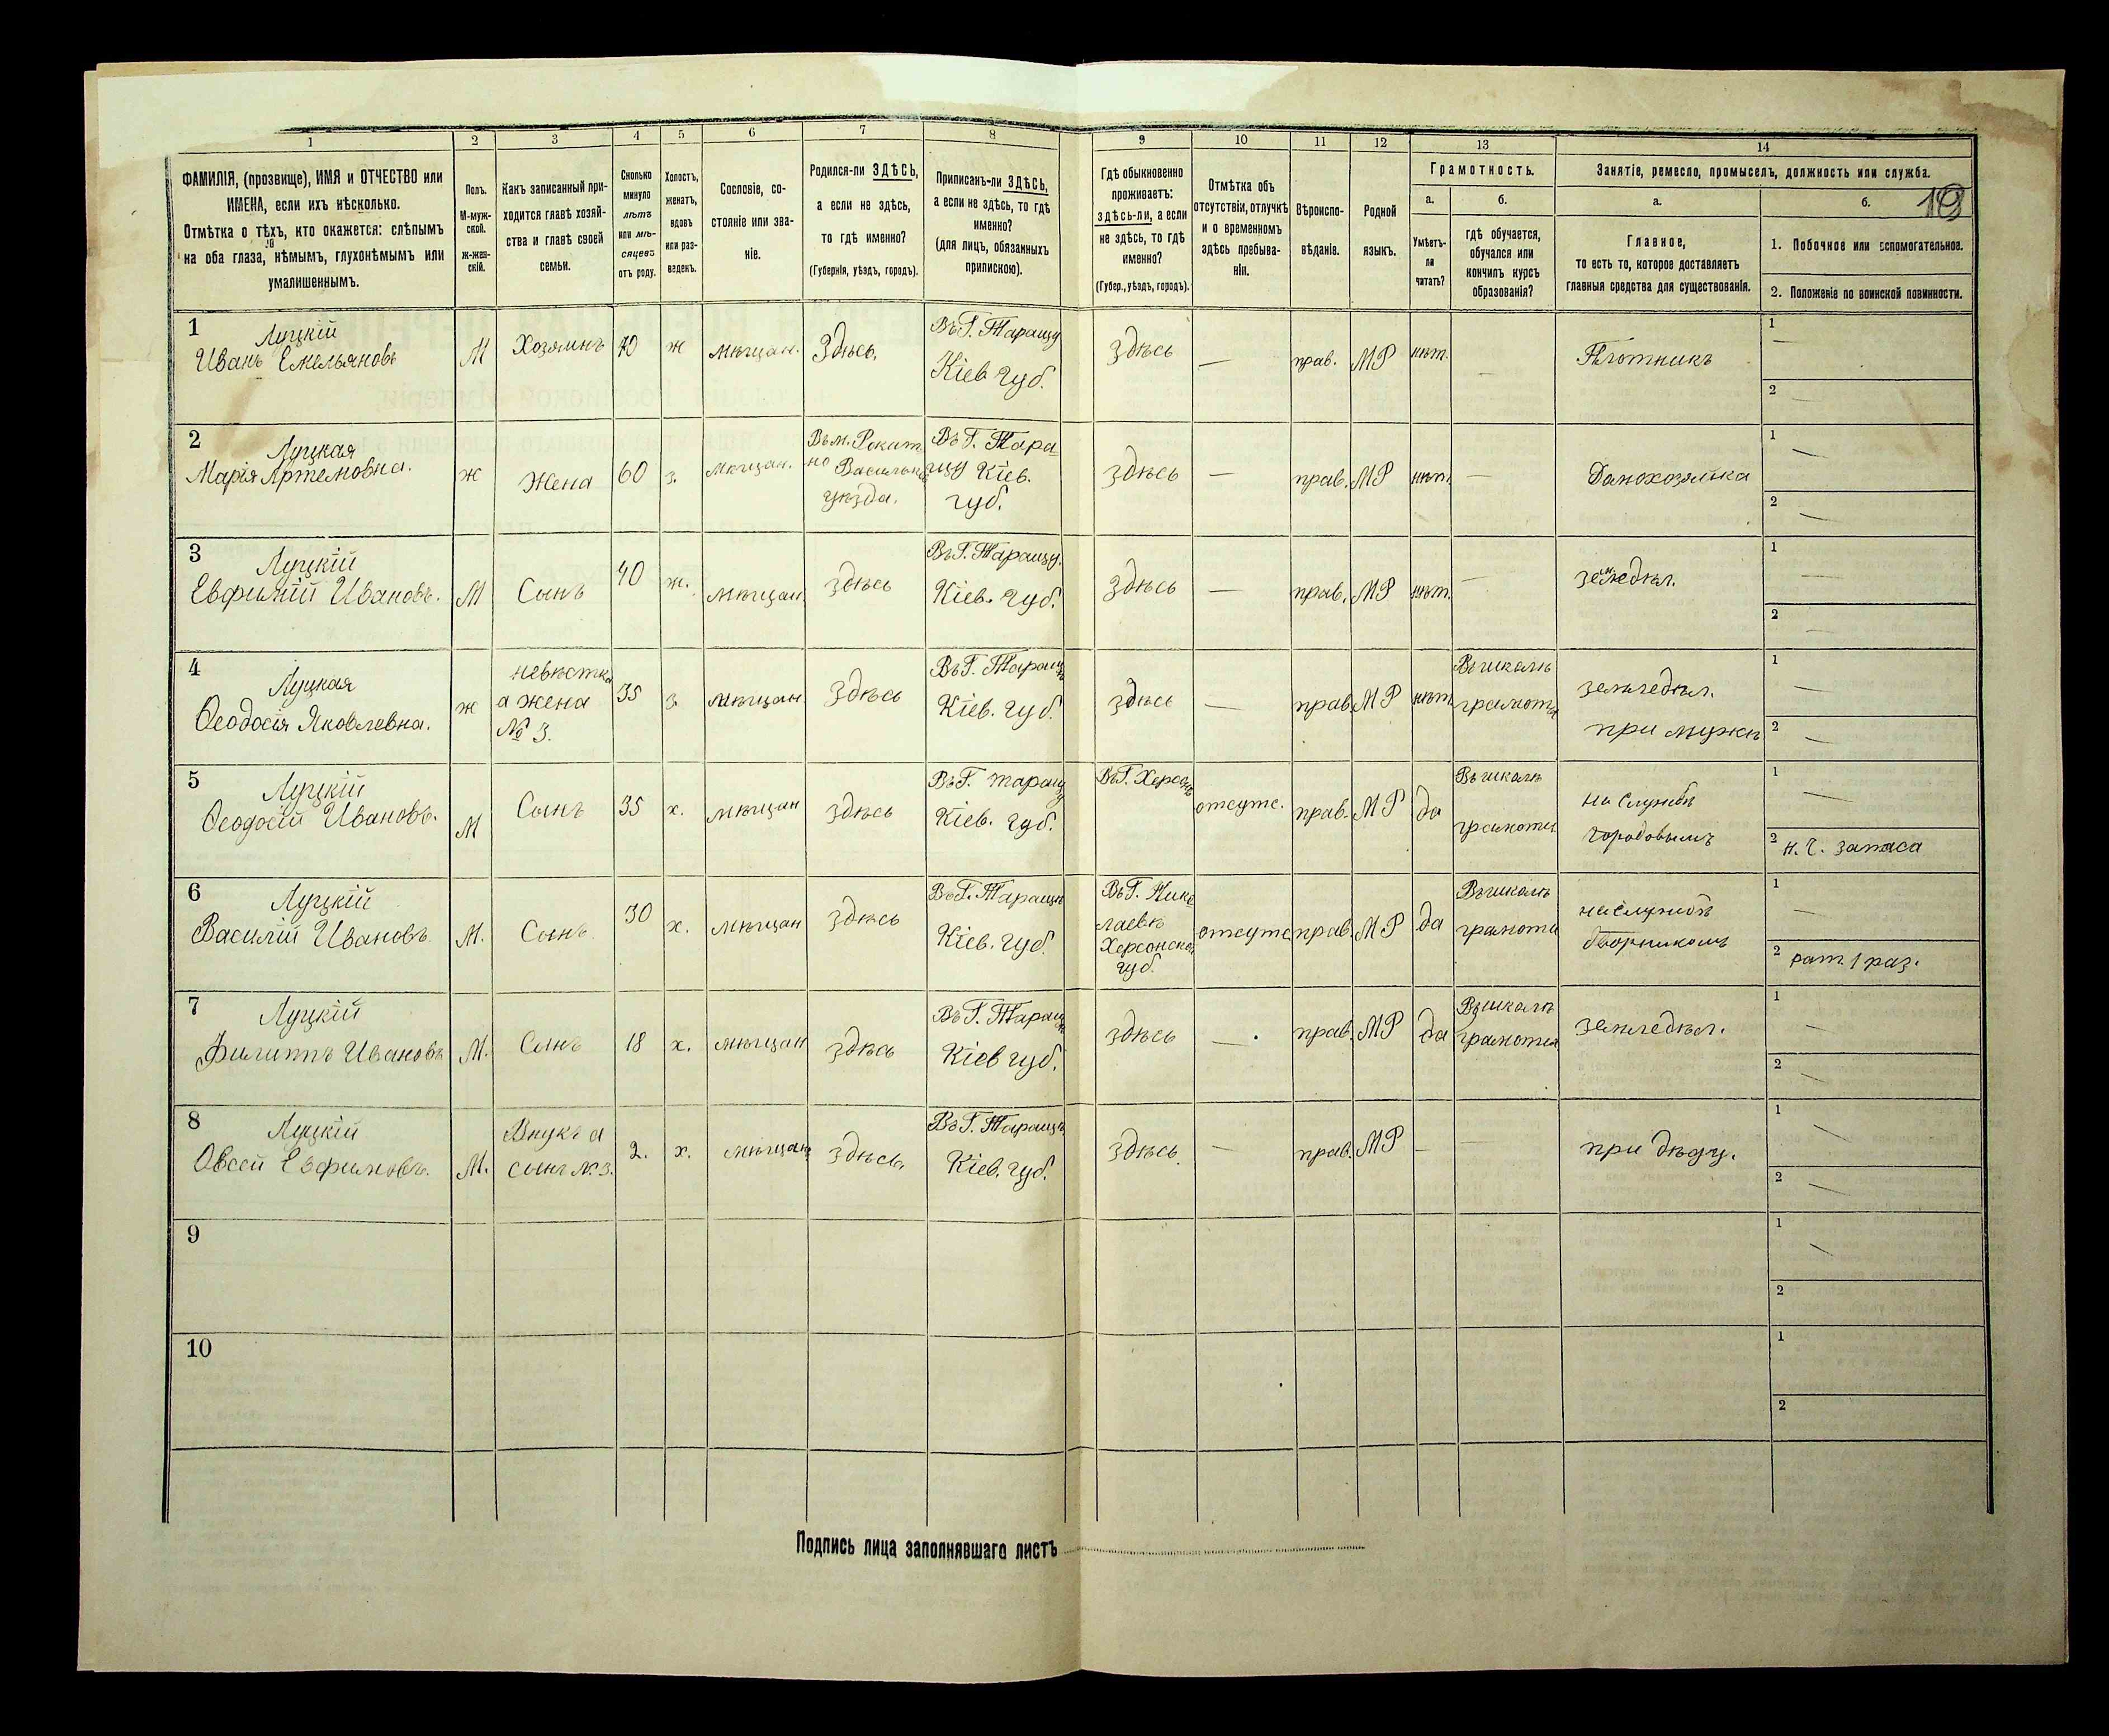 1 2 3 4 5 6 7 8 9 10 11 12 13 14
ФАМИЛІЯ, (прозвище), ИМЯ и ОТЧЕСТВО или
ИМЕНА, если ихъ нѣсколько.
Отмѣтка о тѣхъ, кто окажется: слѣпымъ
на оба глаза, нѣмымъ, глухонѣмымъ или
умалишеннымъ.
Полъ.
М-муж-
ской.
Ж-жен-
скій.
Какъ записанный при-
ходится главѣ хозяй-
ства и главѣ своей
семьи.
Сколько
минуло
лѣтъ
или мѣ-
сяцевъ
отъ роду.
Холостъ,
женатъ,
вдовъ
или раз-
веденъ.
Сословіе, со-
стояніе или зва-
ніе.
Родился-ли ЗДѢСЬ,
а если не здѣсь,
то гдѣ именно?
(Губернія, уѣздъ, городъ).
Приписанъ-ли ЗДѢСЬ,
а если не здѣсь, то гдѣ
именно?
(для лицъ, обязанныхъ
припискою).
Гдѣ обыкновенно
проживаетъ:
здѣсь-ли, а если
не здѣсь, то гдѣ
именно?
(Губер., уѣздъ, городъ).
Отмѣтка объ
отсутствіи, отлучкѣ
и о временномъ
здѣсь пребыва-
ніи.
Вѣроиспо-
вѣданіе.
Родной
языкъ.
Грамотность.
а.
Умѣетъ-
ли
читать?
б.
гдѣ обучается,
обучался или
кончилъ курсъ
образованія?
Занятіе, ремесло, промыселъ, должность или служба.
а.
Главное,
то есть то, которое доставляетъ
главныя средства для существованія.
б.
1. Побочное или вспомогательное.
2. Положеніе по воинской повинности.
1
Луцкій
Иванъ Емельяновъ
М
Хозяинъ
70
ж
мѣщан.
Здѣсь.
Въ Г. Таращу
Кіев губ.
здѣсь
—
прав.
МР
нѣт.
—
Плотникъ
1 —
2 —
2
Луцкая
Марія Артемовна.
ж
Жена
60
з.
мѣщан.
Въ м. Рокит
но Васильк
уѣзда.
Въ Г. Тара
щу Кіев.
губ.
здѣсь
—
прав.
МР
нѣт.
—
Домохозяйка
1 —
2 —
3
Луцкій
Евфимій Ивановъ.
М
Сынъ
40
ж.
мѣщан.
здѣсь
Въ Г. Таращу.
Кіев. губ.
здѣсь
—
прав.
МР
нѣт.
—
земледѣл.
1 —
2 —
4
Луцкая
Ѳеодосія Яковлевна.
ж
невѣстка
а жена
№ 3.
35
з
мѣщан.
здѣсь
Въ Г. Таращ
Кіев. губ.
здѣсь
—
прав.
МР
нѣт.
Въ школѣ
грамоты
земледѣл.
при мужѣ
1 —
2 —
5
Луцкій
Ѳеодосій Ивановъ.
М
Сынъ
35
х.
мѣщан
здѣсь
Въ Г. Таращу
Кіев. губ.
Въ Г. Херсонѣ
отсутс.
прав.
МР
да
Въ школѣ
грамоты
на службѣ
городовымъ
1 —
2 н. ч. запаса
6
Луцкій
Василій Ивановъ
М.
Сынъ
30
х.
мѣщан
здѣсь
Въ Г. Таращу
Кіев. губ
Въ Г. Нико
лаевѣ
Херсонско
губ.
отсутс
прав.
МР
да
Въ школѣ
грамоты
на службѣ
дворникомъ
1 —
2 рат. 1 раз.
7
Луцкій
Филиппъ Ивановъ
М.
Сынъ
18
х.
мѣщан
здѣсь
Въ Г. Таращу
Кіев губ.
здѣсь
—
прав.
МР
да
Въ школѣ
грамоты
земледѣл.
1 —
2 —
8
Луцкій
Овсей Евфимовъ.
М.
Внукъ а
сынъ № 3.
2.
х.
мѣщан
здѣсь.
Въ Г. Таращу
Кіев. губ.
здѣсь.
—
прав.
МР
—
—
при дѣду.
1 —
2 —
9
1 —
2
10
1
2
Подпись лица заполнявшаго листъ